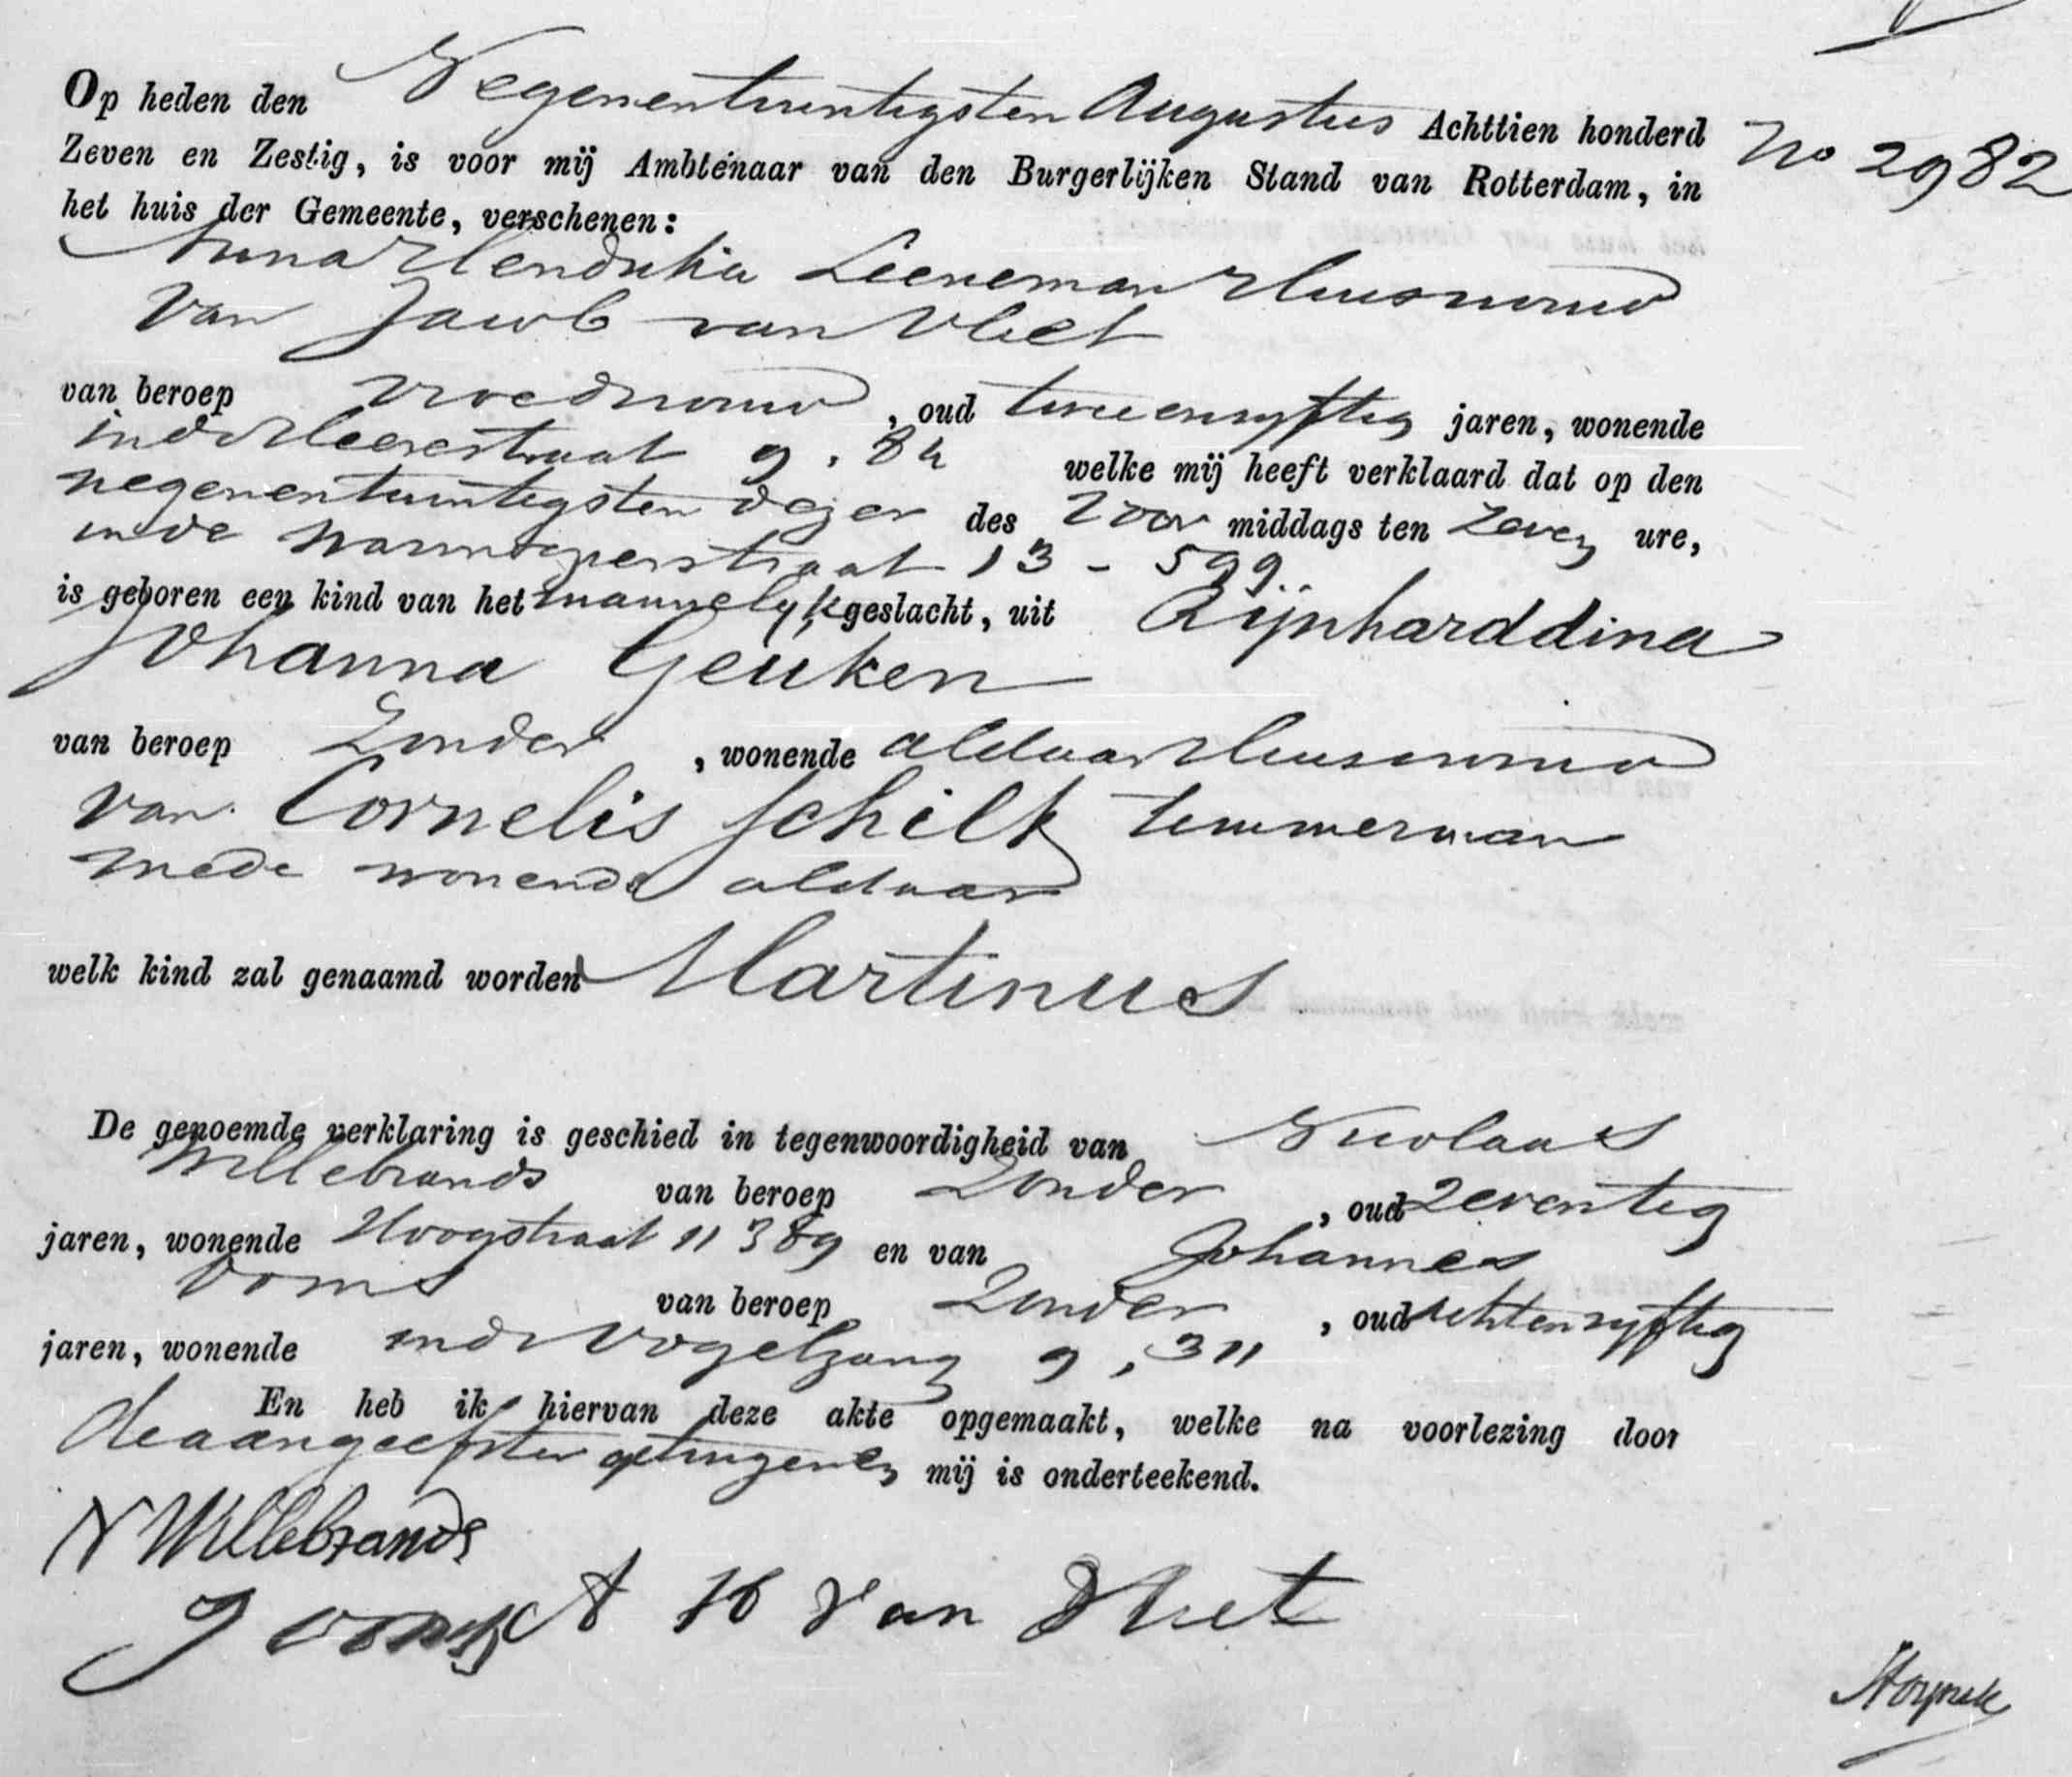 Op heden den Negenentwintigsten Augustus Achttien honderd
No 2982
Zeven en Zestig, is voor mij Ambtenaar van den Burgerlijken Stand van Rotterdam, in
het huis der Gemeente, verschenen:
Anna Hendrika Leeneman Huisvrouw
van Jacob van Vliet
van beroep vroedvrouw, oud tweeenvyftig jaren, wonende
in de Heerestraat 9. 84 welke mij heeft verklaard dat op den
negenentwintigsten dezer des Voor middags ten Zeven ure,
in de 13 - 599.
is geboren een kind van het mannelyk geslacht, uit Rijnharddina
Johanna Geuken
van beroep Zonder, wonende aldaar Huisvrouw
van Cornelis Schilt timmerman
mede wonende aldaar
welk kind zal genaamd worden Martinus
De genoemde verklaring is geschied in tegenwoordigheid van Nicolaas
Willebrands van beroep Zonder, oud Zeventig
jaren, wonende Hoogstraat 11 389 en van Johannes
Voms van beroep Zonder, oud achtenvyftig
jaren, wonende in de Vogelzang 9, 311
En heb ik hiervan deze akte opgemaakt, welke na voorlezing door
de aangeefster getuigen en mij is onderteekend.
N Willebrands
J A H van Vliet